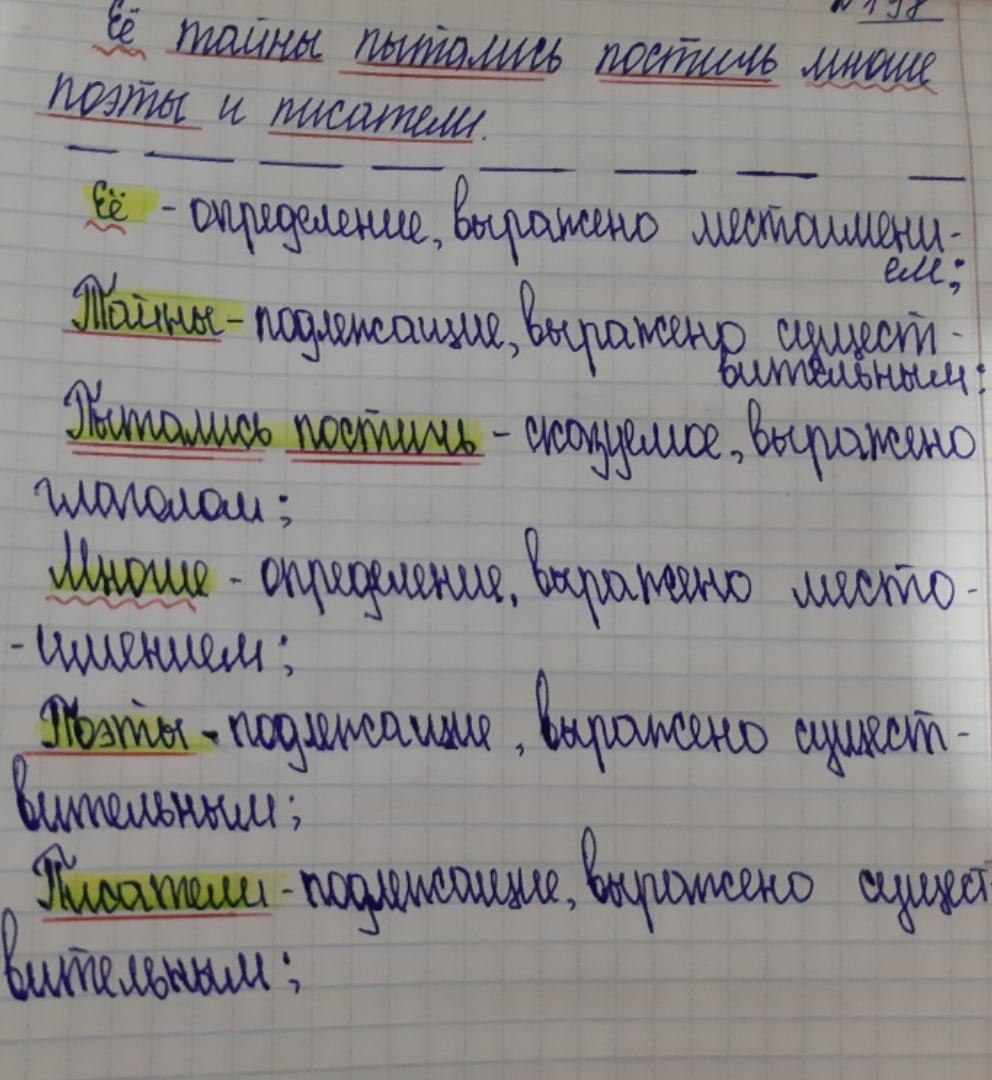 №198
Её тайны пытались постичь многие
поэты и писатели.
Её - определение, выражено местоимени-
ем;
Тайны - подлежащие, выражено сущест-
вительным;
Пытались постичь - сказуемое, выражено
глаголом;
Многие - определение, выражено место-
-имением;
Поэты - подлежащие, выражено сущест-
вительным;
Писатели - подлежащие, выражено сущест
вительным;